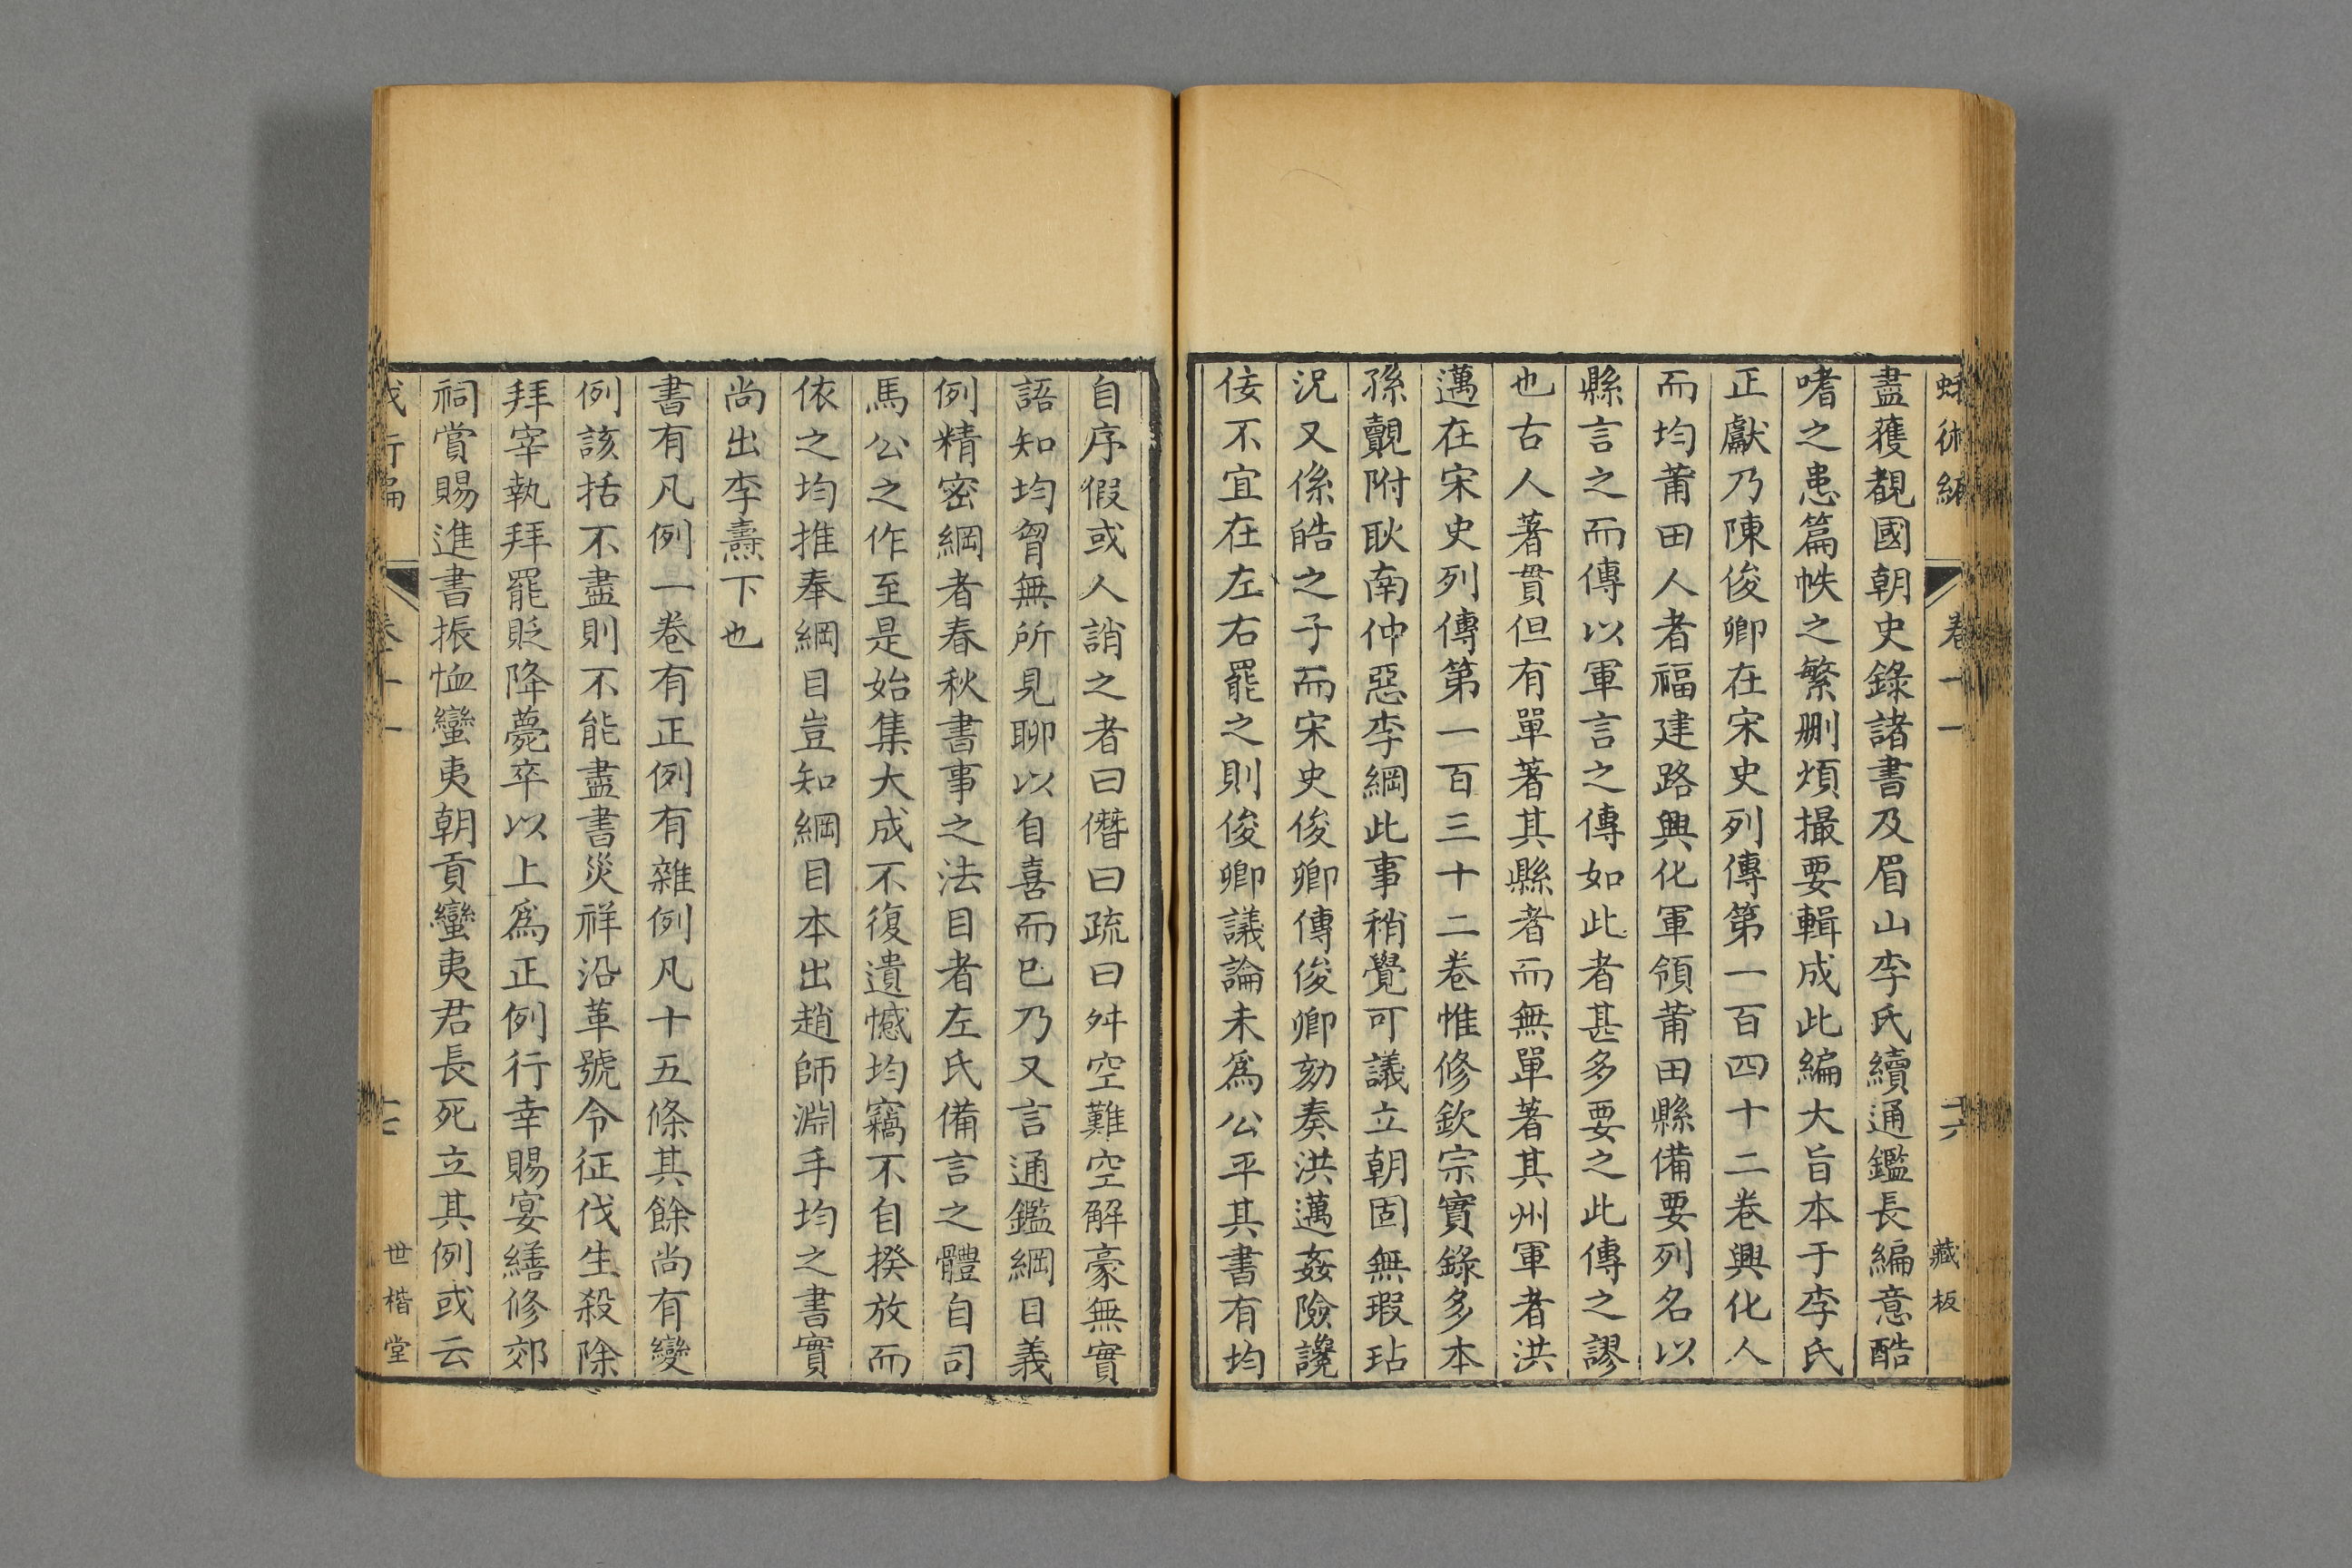 卷十一
十六
藏板
盡獲覩國朝史錄諸書及眉山李氏續通鑑長編意酷
嗜之患篇帙之繁刪煩撮要輯成此編大旨本于李氏
正獻乃陳俊卿在宋史列傳第一百四十二卷興化人
而均莆田人者福建路興化軍領莆田縣備要列名以
縣言之而傳以軍言之傳如此者甚多要之此傳之謬
也古人著貫但有單著其縣者而無單著其州軍者洪
邁在宋史列傳第一百三十二卷惟修欽宗實錄多本
孫覿附耿南仲惡李綱此事稍覺可議立朝固無瑕玷
況又係皓之子而宋史俊卿傳俊卿劾奏洪邁姦險讒
佞不宜在左右罷之則俊卿議論未爲公平其書有均
自序假或人誚之者曰僭曰疏曰舛空難空解豪無實
語知均胷無所見聊以自喜而已乃又言通鑑綱目義
例精密綱者春秋書事之法目者左氏備言之體自司
馬公之作至是始集大成不復遺憾均竊不自揆放而
依之均推奉綱目豈知綱目本出趙師淵手均之書實
尚出李燾下也
書有凡例一卷有正例有雜例凡十五條其餘尚有變
例該括不盡則不能盡書災祥沿革號令征伐生殺除
拜宰執拜罷貶降薨卒以上爲正例行幸賜宴繕修郊
祠賞賜進書振恤蠻夷朝貢蠻夷君長死立其例或云
世楷堂